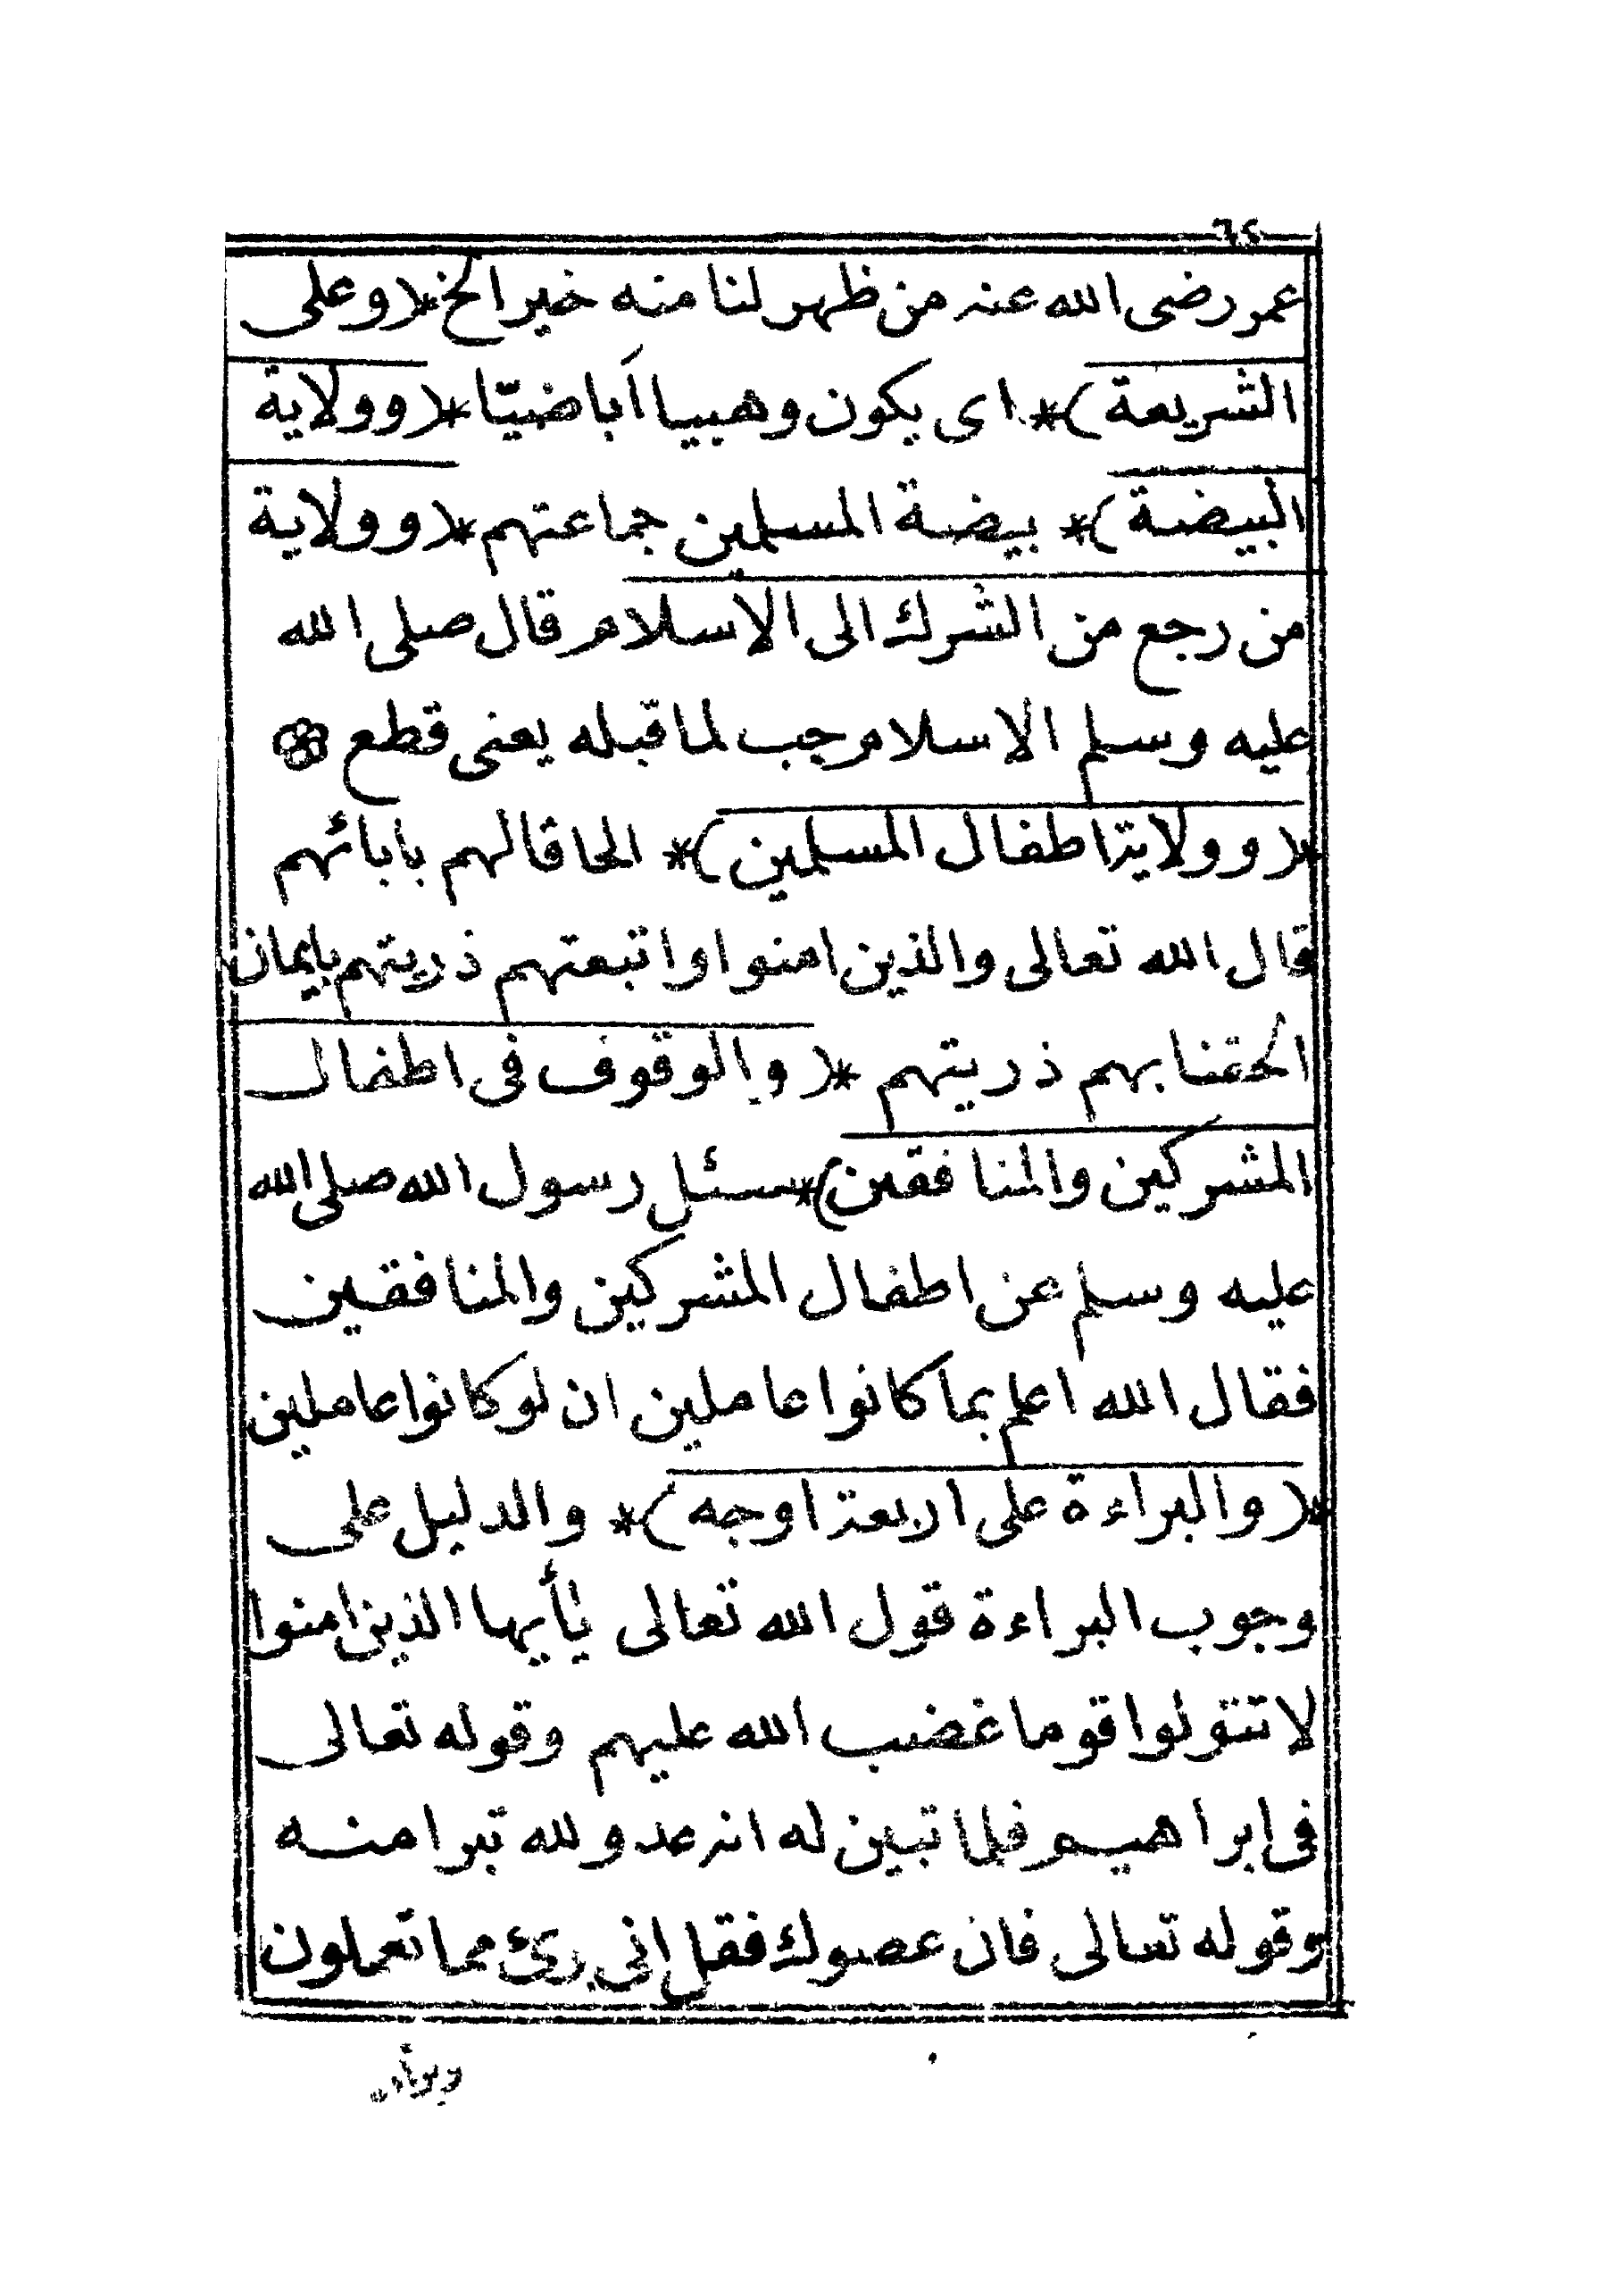 ٦٤
عمر رضى الله عنه من ظهر لنا منه خير الخ *( وعلى
الشريعة )* اى يكون وهبيا اَباضيّا *( وولاية
البيضة )* بيضة المسلمين جماعتهم *( وولاية
من رجع من الشرك الى الاسلام قال صلى الله
عليه وسلم الاسلام جب لما قبله يعنى قطع
*( وولاية اطفال المسلمين )* الحاقا لهم بابائهم
قال الله تعالى والذين امنوا واتبعتهم ذريتهم بايمان
الحقنا بهم ذريتهم *( والوقوف فى اطفال
المشركين والمنافقين )* سئل رسول الله صلى الله
عليه وسلم عن اطفال المشركين والمنافقين
فقال الله اعلم بما كانوا عاملين ان لو كانوا عاملين
*( والبراءة على اربعة اوجه )* والدليل على
وجوب البراءة قول الله تعالى يٰأيها الذين امنوا
لا تتولوا قوما غضب الله عليهم وقوله تعالى
فى إبراهيم فلما تبين له انه عدو لله تبرا منه
وقوله تعالى فان عصوك فقل إنى برئ مما تعملون